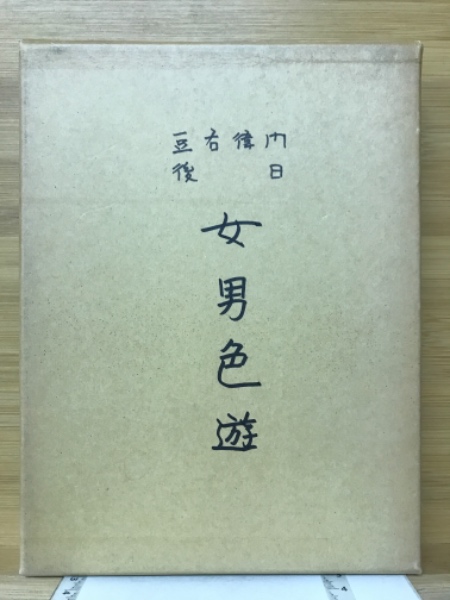 豆右衛門
後日
女男色遊